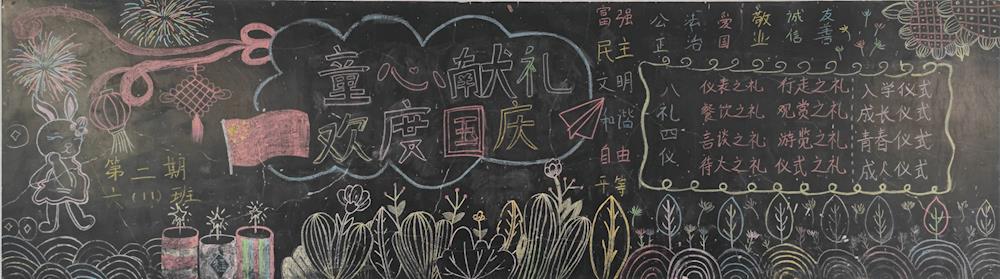 童心献礼
欢度国庆
第二期
六(11)班
富强
民主
文明
和谐
自由
平等
公正
法治
爱国
敬业
诚信
友善
八礼四仪
仪表之礼 行走之礼 入学仪式
餐饮之礼 观赏之礼 成长仪式
言谈之礼 游览之礼 青春仪式
待人之礼 仪式之礼 成人仪式